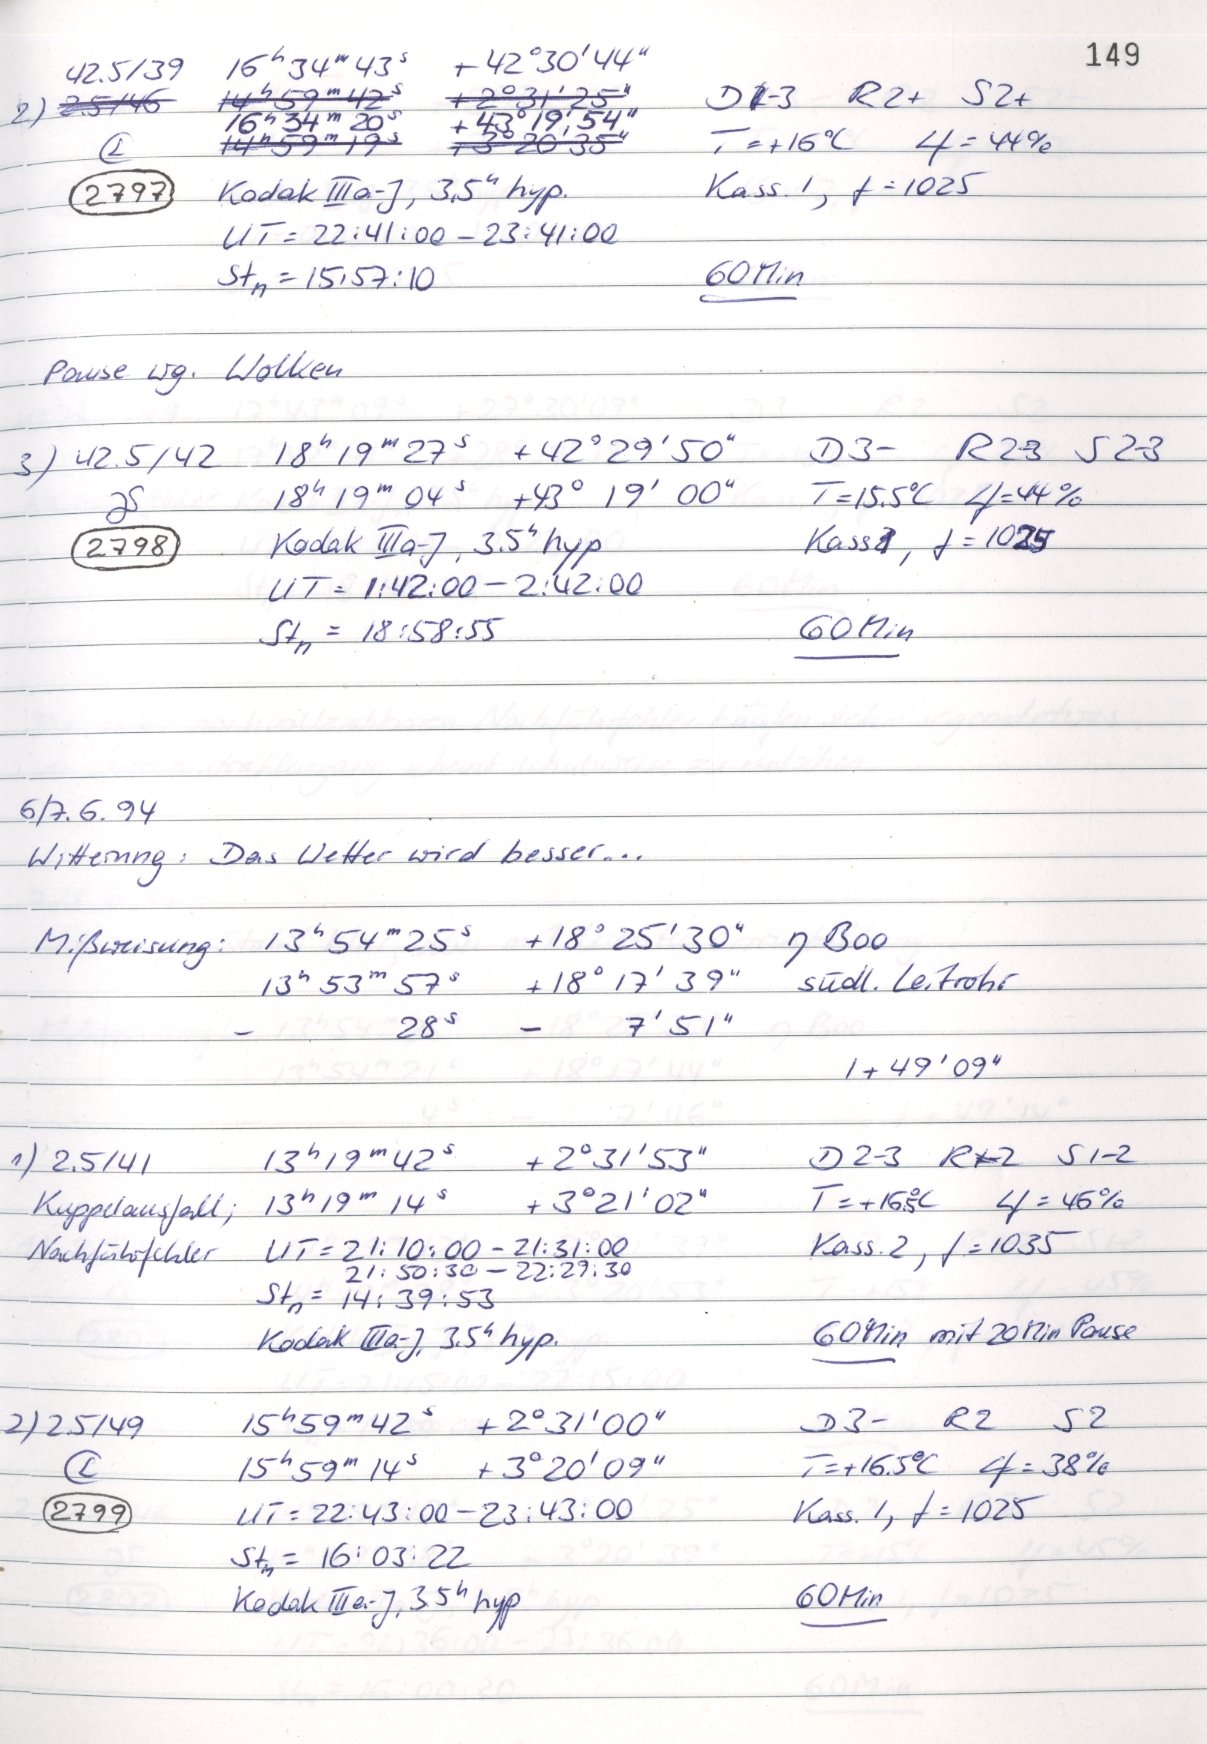 149
42.5/39 16ʰ34ᵐ43ˢ +42°30'44"
2) 2.5/46 14ʰ59ᵐ42ˢ +2°31'25" D2-3 R2+ S2+
16ʰ34ᵐ20ˢ +43°19'54"
14ʰ59ᵐ19ˢ +3°20'35" T=+16°C φ=44%
2797 Kodak IIIa-J, 3,5ʰ hyp. Kass. 1, f=1025
UT=22:41:00-23:41:00
Stₙ=15:57:10 60Min
Pause wg. Wolken
3) 42.5/42 18ʰ19ᵐ27ˢ +42°29'50" D3- R2-3 S2-3
18ʰ19ᵐ04ˢ +43°19'00" T=15.5°C φ=44%
2798 Kodak IIIa-J, 3.5ʰ hyp Kass 1, f=1025
UT=1:42:00-2:42:00
Stₙ=18:58:55 60Min
6/7.6.94
Witterung: Das Wetter wird besser...
Mißweisung: 13ʰ54ᵐ25ˢ +18°25'30" η Boo
13ʰ53ᵐ57ˢ +18°17'39" südl. Leitrohr
- 28ˢ - 7'51"
1+49'09"
1) 2.5/41 13ʰ19ᵐ42ˢ +2°31'53" D2-3 R2 S1-2
Kuppelausfall; 13ʰ19ᵐ14ˢ +3°21'02" T=+16.5°C φ=46%
Nachführfehler UT=21:10:00-21:31:00 Kass. 2, f=1035
21:50:30-22:29:30
Stₙ=14:39:53
Kodak IIIa-J, 3.5ʰ hyp. 60Min mit 20Min Pause
2) 2.5/49 15ʰ59ᵐ42ˢ +2°31'00" D3- R2 S2
15ʰ59ᵐ14ˢ +3°20'09" T=+16.5°C φ=38%
2799 UT=22:43:00-23:43:00 Kass. 1, f=1025
Stₙ=16:03:22
Kodak IIIa-J, 3.5ʰ hyp 60Min